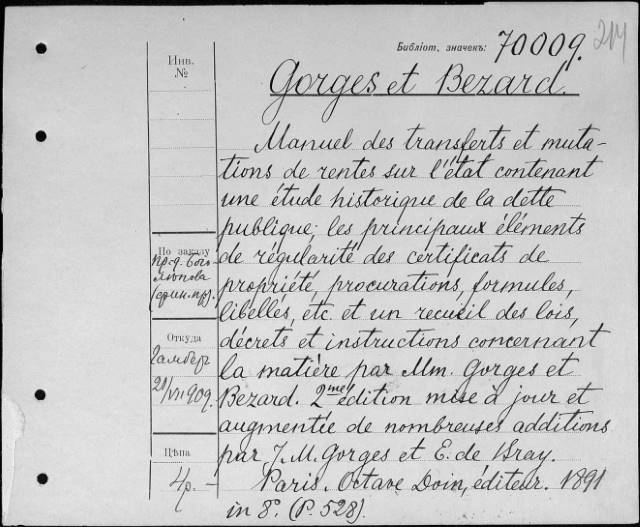 Библіот. значекъ: 70009.
214
Инв.
№
Gorges et Bezard.
Manuel des transferts et muta-
tions de rentes sur l'état contenant
une étude historique de la dette
publique; les principaux éléments
de régularité des certificats de
propriété, procurations, formules,
libellés, etc. et un recueil des lois,
décrets et instructions concernant
la matière par Mm. Gorges et
Bezard. 2me édition mise à jour et
augmentie de nombreuses additions
par J. M. Gorges et E. de Bray.
Paris. Octave Doin, éditeur. 1891
in 8°. (P. 528).
По заказу
пр-д. Бого
лѣпова
(фин. пр.).
Откуда
Гамберъ
21/VII 909.
Цѣна
4р. —